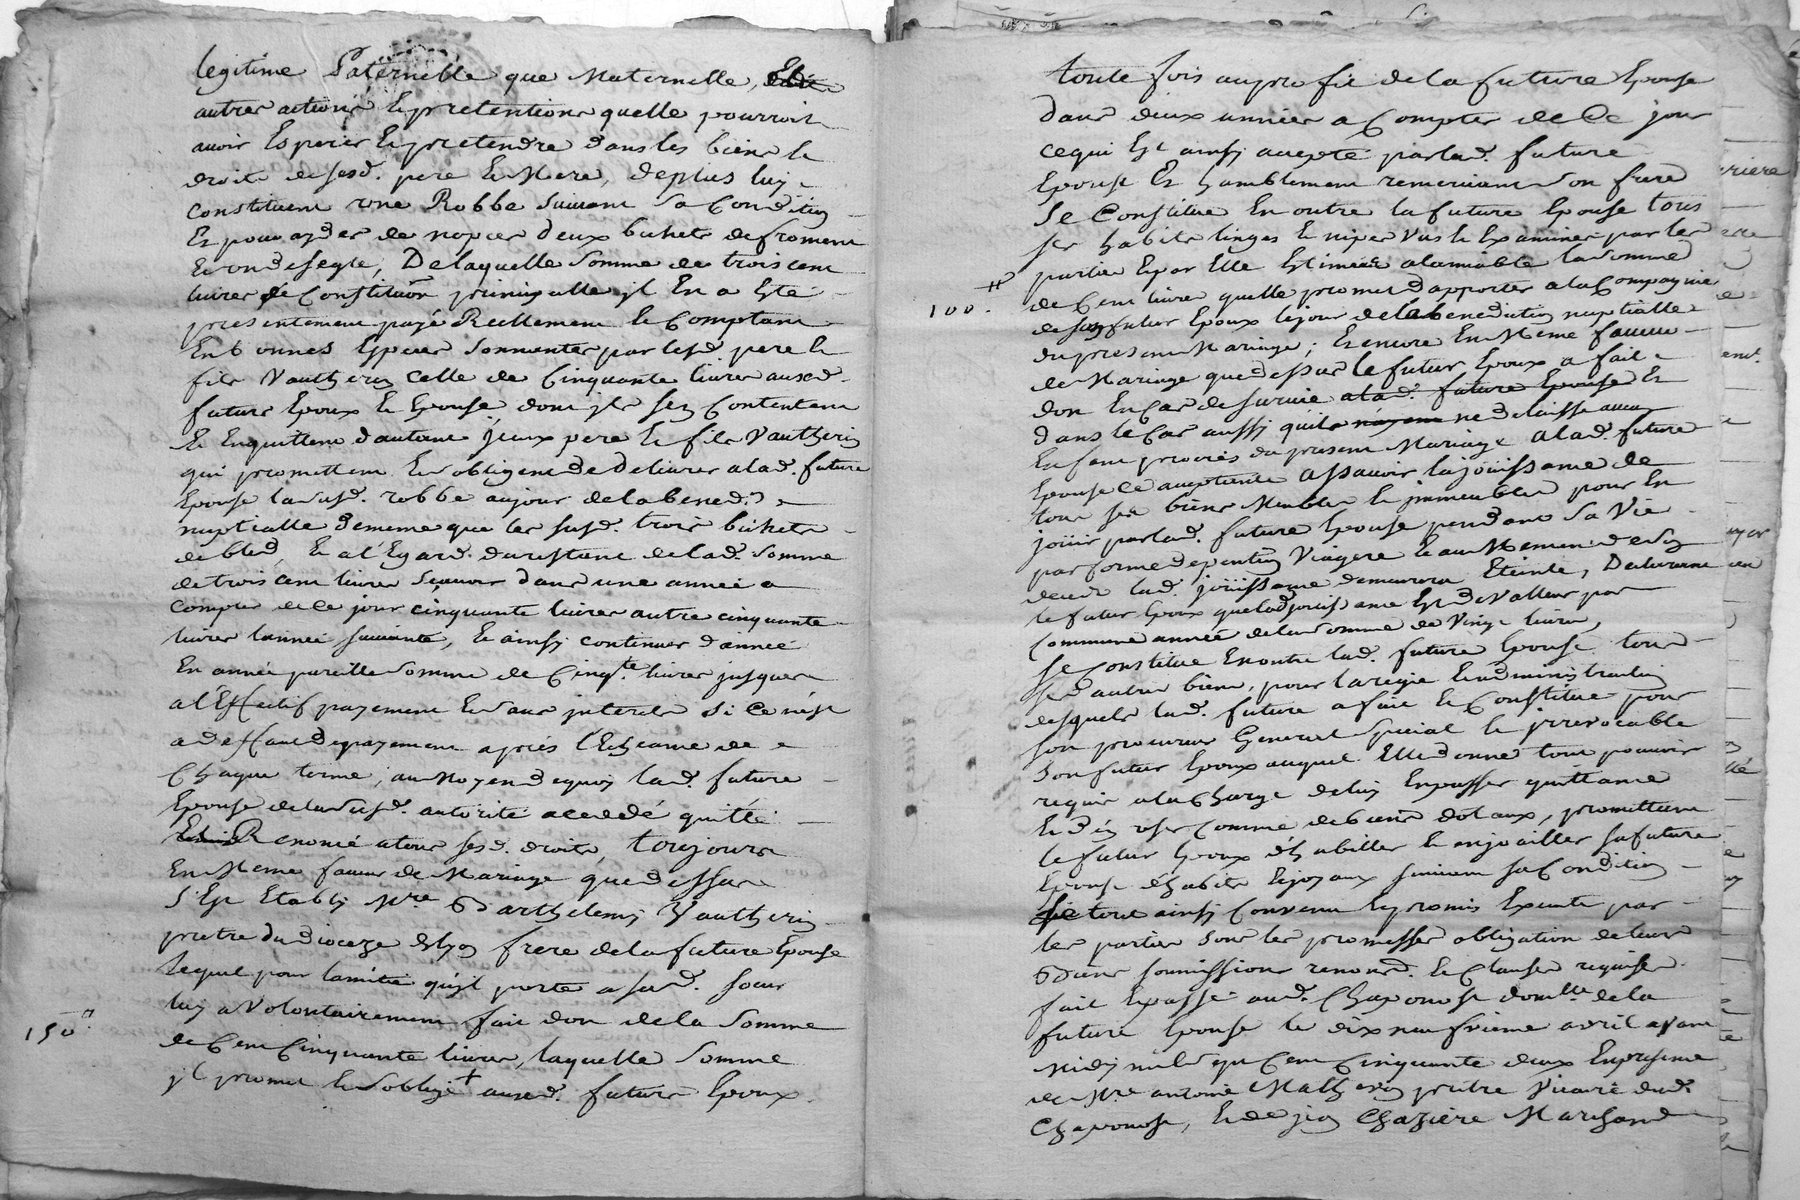 legitime Paternelle que Maternelle,
autres actions & pretentions quelle pourroit
avoir Esperer & pretendre dans les biens &
droits de sesd. pere & Mere, deplus luy
constituent une Robbe suivant sa Condition
Et pour ayder de nopces deux bichets de froment
& un de segle, De laquelle somme de trois cent
livres de Constitution principalle jl En a Esté
presentement payé Reellement & Comptant
En bonnes Especes sonnantes par lesd. pere &
fils Vautherin celle de Cinquante livres ausd.
futurs Epoux & Epouse, dont jls sen Contentent
& Enquittent d'autant jceux pere & fils Vautherin
qui promettent & sobligent de delivrer a lad. future
Epouse la susd. robbe au jour de la bened.on
nuptialle de meme que les susd. trois bichets
de bled, & a l'Egard du restant de lad. somme
de trois cent livres scavoir dans une année a
compter de ce jour cinquante livres autre cinquante
livres lannée suivante, & ainsy continuer d'année
En année pareille somme de Cinq.te livres jusques
a l'Effectif payement & sans jnterets si ce n'est
a deffaut de payement aprés l'Echeance de
Chaque terme, au Moyen dequoy lad. future
Epouse de la susd. autorité a cedé quitté
Renoncé a tous sesd. droits, toujours
En Meme faveur de Mariage que dessus
S'Est Etably M.re Barthelemy Vautherin
pretre du dioceze de lyon frere de la future Epouse
lequel pour lamitié qu'jl porte a sad. soeur
luy a Volontairement fait don de la somme
150.#
de Cent Cinquante livres, laquelle somme
jl promet & soblige + ausd. futurs Epoux
toute fois au profit de la future Epouse
dans deux années a Compter de Ce jour
ce qui Est ainsy accepté par lad. future
Epouse Et humblement remerciant son frere
Se Constitue En outre la future Epouse tous
ses habits linges & nipes Vus & Examinés par les
parties & par Elle Estimées alamiable la somme
100.#
de Cent livres quelle promet d'apporter a la Compagnie
de son futur Epoux le jour de la benediction nuptialle
du present Mariage; Et encore En Meme faveur
de Mariage que dessus le futur Epoux a fait
don En Cas de survie a lad. future Epouse Et
dans le Cas aussy quils ne delaisse aucun
Enfant procréés du present Mariage a lad. future
Epouse ce acceptante assavoir la joüissance de
tous ses biens Meubles & jmmeubles pour En
joüir par lad. future Epouse pendant sa Vie
par forme de pention Viagere & au Moment de son
decez lad. joüissance demeurera Eteinte, Declarant
le futur Epoux que lad. joüissance Est de Valleur par
Commune année de la somme de Vingt livres,
Se Constitue En outre lad. future Epouse tous
ses autres biens, pour la regie & administration
desquels lad. future a fait & Constitue pour
son procureur General Special & jrrevocable
son futur Epoux auquel Elle donne tout pouvoir
requis a la Charge de luy En passer quittance
& d'En user comme de biens dotaux, promettant
le futur Epoux d'habiller & enjoailler sa future
Epouse d'habits & joyaux suivant sa Condition
tout ainsy Convenu & promis Executer par
les parties sous les promesses obligation de leurs
Biens soumissions renond. & Clauses requises
fait & passé aud. Chaponost domille de la
future Epouse le dix neufvieme avril avant
Midy mil sept Cent Cinquante deux En presence
de M.re antoine Matheron pretre Vicaire dud.
Chaponost, & de jean Chazière Marchand